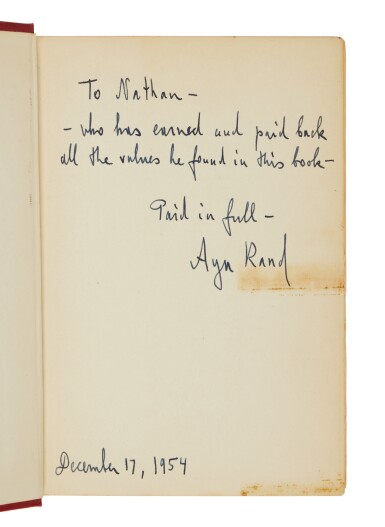 To Nathan —
— who has earned and paid back
all the values he found in this book —
Paid in full —
Ayn Rand
December 17, 1954